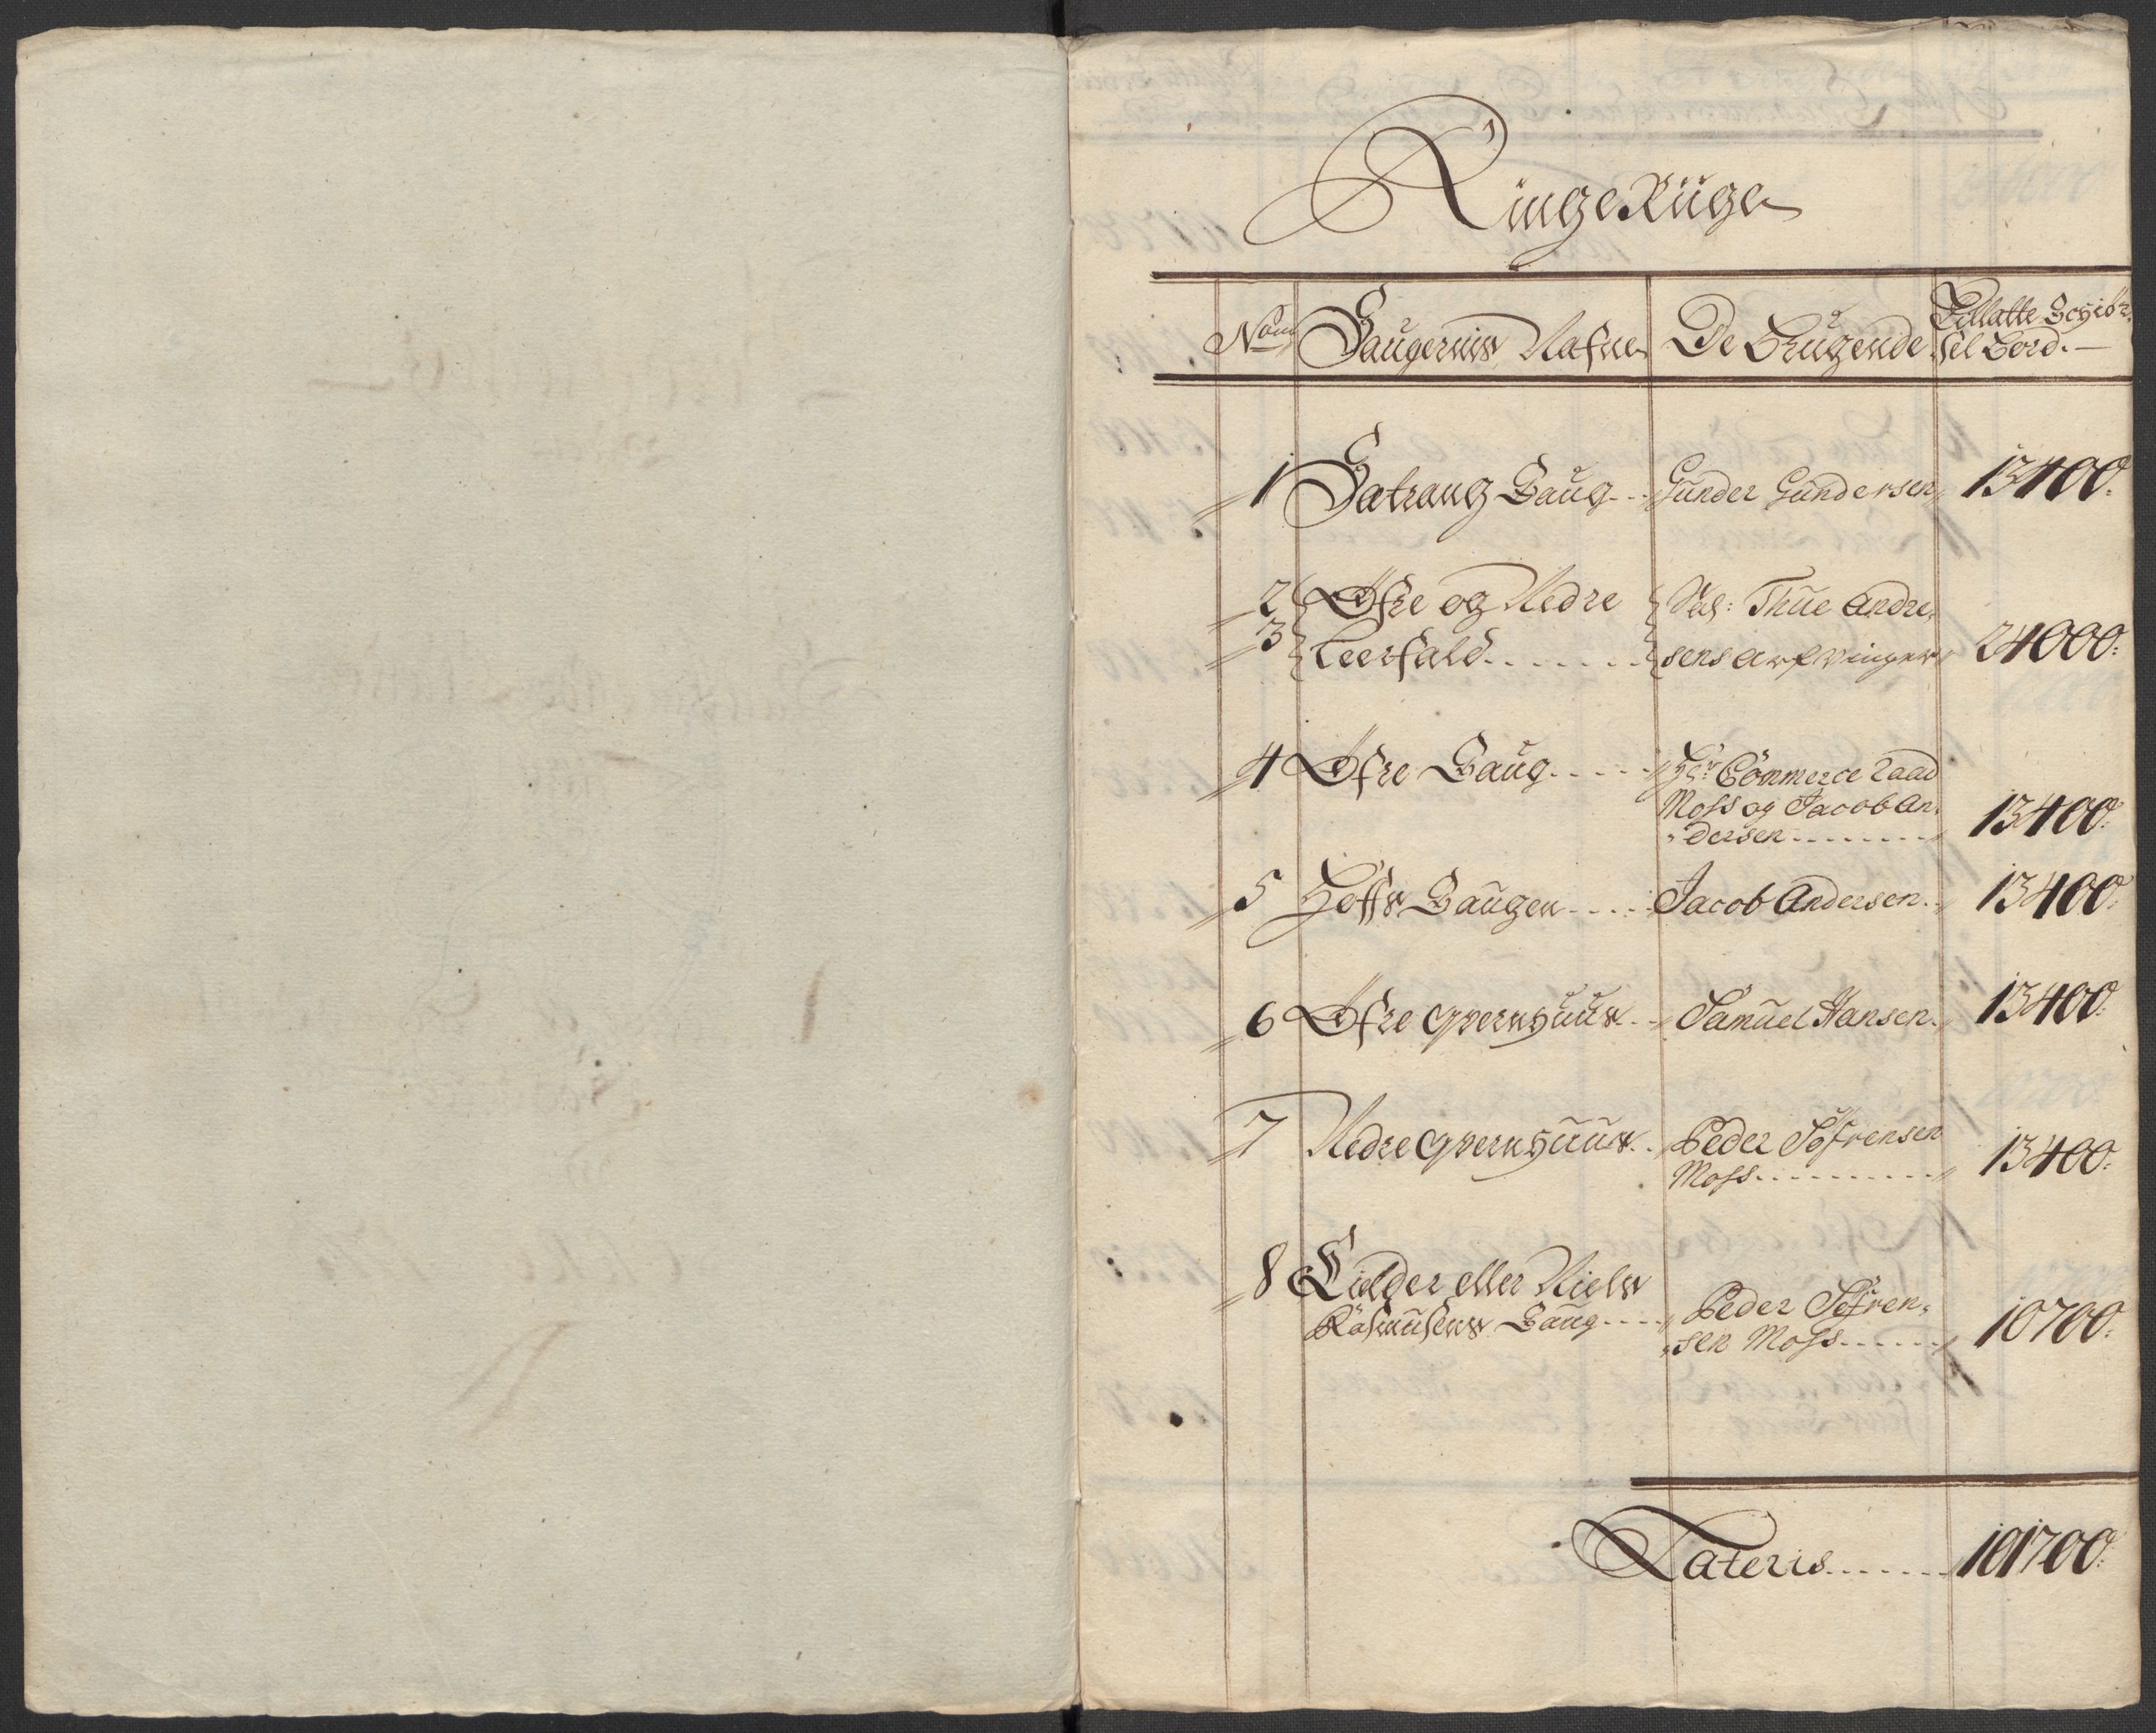 RingeRüge
Num Saugernis Nafne De Brugende Tillatte Schib:
sel Bord.
1 Satrang Saug Gunder Gundersen 13400.
2 Øfre og Nedre Sal: Thue Andre,
3 Leerfald sens arfvinger 24000.
4 Øfre Saug Hr: Commerce raad
Moss og Jacob An,
dersen 13400.
5 Hoffs Saugen Jacob Andersen. 13400.
6 Øfre Qvernhuus Samuel Hansen. 13400.
7 Nedre Qvernhuus Peder Søfrensen
Moss 13400.
8 Eielder eller Niels
Rasmusens Saug Peder Søfren,
sen Moss 10700.
Lateris 101700.